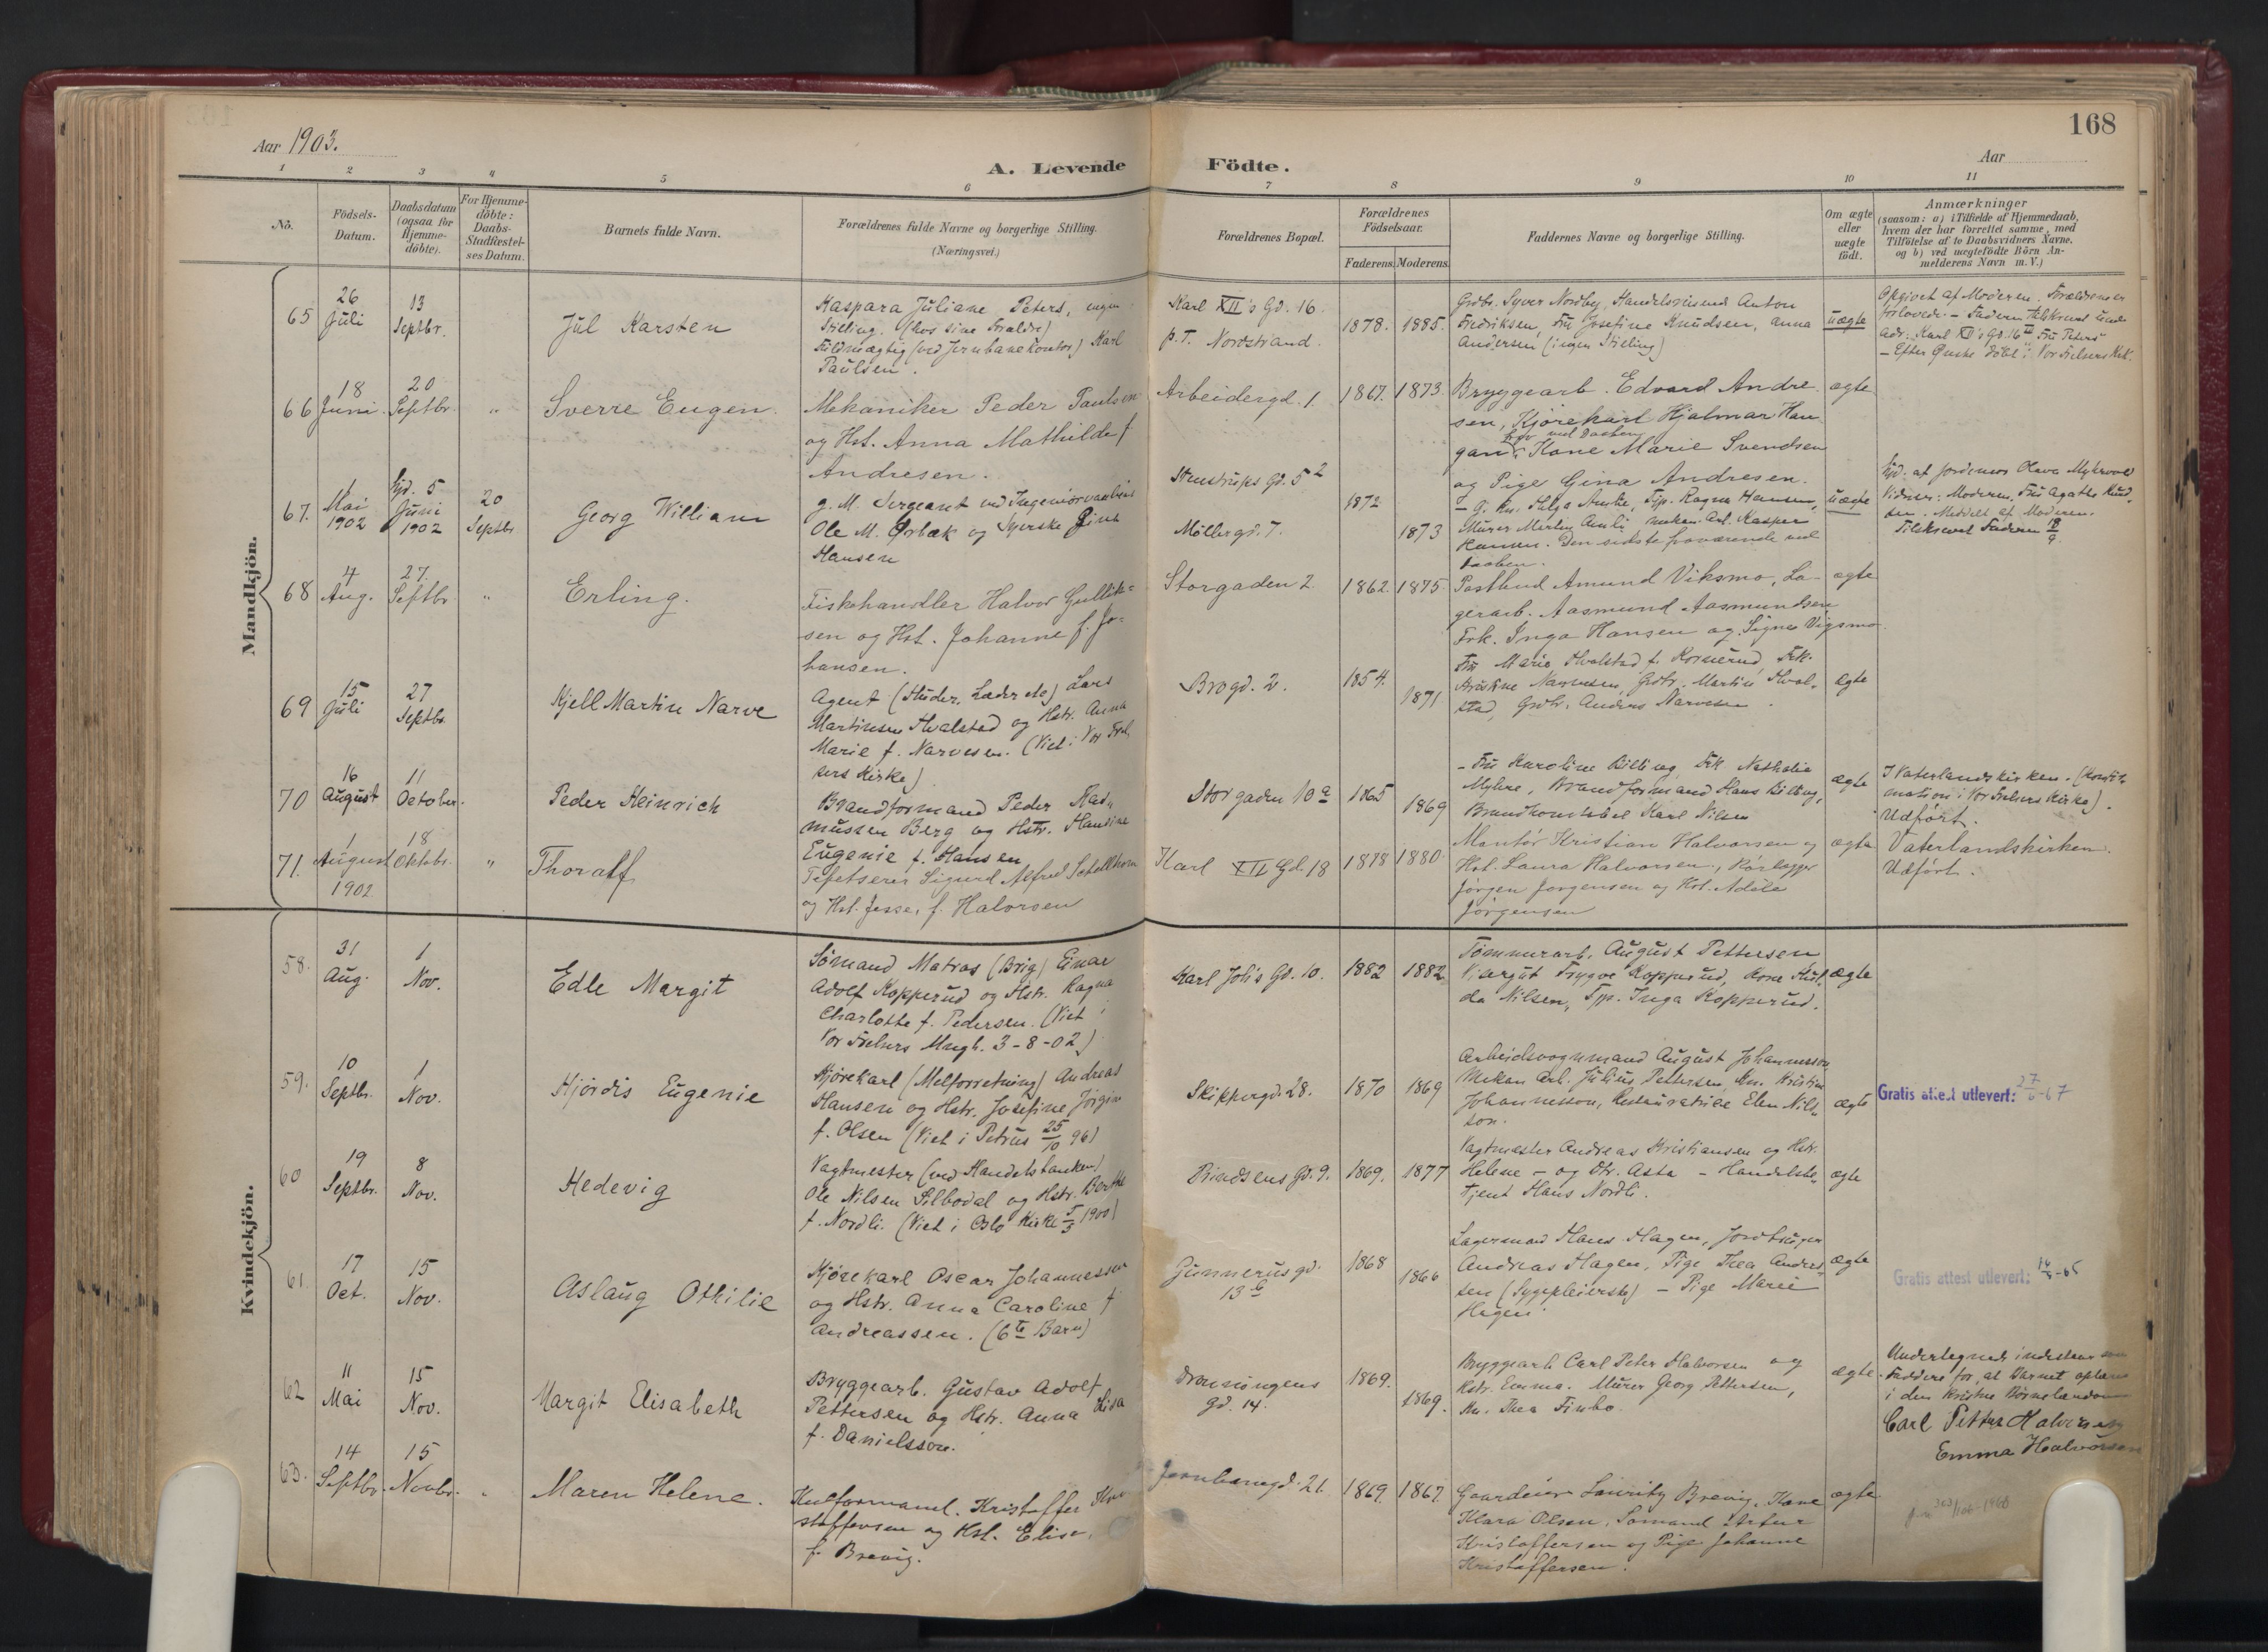 168
Aar 1903.
Aar
A. Levende Födte.
1 2 3 4 5 6 7 8 9 10 11
No.
Födsels-Datum.
Daabsdatum (ogsaa for Hjemme-döbte).
For Hjemme-döbte: Daabs-Stadfæstel-ses Datum.
Barnets fulde Navn.
Forældrenes fulde Navne og borgerlige Stilling.
(Næringsvei.)
Forældrenes Bopæl.
Forældrenes Födselsaar.
Faderens. Moderens.
Faddernes Navne og borgerlige Stilling.
Om ægte eller uægte födt.
Anmærkninger
(saasom: a) i Tilfælde af Hjemmedaab,
hvem der har forrettet samme, med
Tilföielse af to Daabsvidners Navne.
og b) ved uægtefödte Börn An-
melderens Navn m. V.)
Mandkjön.
65
26 Juli
13 Septbr.
Jul Karsten
Kaspara Juliane Peters, ingen
Stilling. (hos sine Forældre)
Fuldmægtig (ved Jernbanekontor) Karl
Paulsen.
Karl XII's Gd. 16.
p.T. Nordstrand.
1878. 1885.
Grdbr. Syver Nordby, Handelsreisend Anton
Fredriksen, Fru Josefine Knudsen, Anna
Andersen (ingen Stilling)
uægte
Opgivet af Moderen. Forældrene er
forlovede. - Faderen tilskrevet under
Adr: Karl XII's Gd. 16 III Fru Peters
- Efter Ønske døbt i Vor Frelsers Kirk.
66
18 Juni.
20 Septbr.
"
Sverre Eugen.
Mekaniker Peder Paulsen
og Hst. Anna Mathilde f
Andresen.
Arbeidergd. 1.
1867. 1873.
Bryggearb. Edvard Andre-
sen, Kjørekarl Hjalmar Han-
ved Daaben
gand, Kone Marie Svendsen
og Pige Gina Andresen.
ægte
67.
1 Mai 1902
Hjd. 5 Juni 1902
20 Septbr.
Georg William
g. M. Sergeant ved Ingeniørvaabnet
Ole M. Ørbæk og Syerske Gina
Hansen
Stenstrups Gd. 5 2
Møllergd. 7.
1872
1873
- G. Kn. Helga Aulie, Tjp. Ragna Hansen,
Murer Martin Aulie, mekan. Arb. Kasper
Hansen. Den sidste fraværende ved
Daaben.
uægte
Hjd. af Jordemor Olava Myhrvold
Vidner: Moderen, Fru Agathe Knud-
sen. Meddelt af Moderen.
Tilskrevet Faderen 18/9
68
4 Aug.
27. Septbr
"
Erling.
Fiskehandler Halvor Gullik-
sen og Hst. Johanne f. Jo-
hansen.
Storgaden 2.
1862. 1875.
Postbud Amund Viksmo, La-
gerarb. Aasmund Aasmundsen
Frk. Inga Hansen og Signe Vigsmo
ægte
69
15 Juli
27 Septbr.
Kjell Martin Narve
Agent (Huder, Læder etc) Lars
Martinsen Hvalstad og Hstr. Anna
Marie f. Narvesen. (Viet i Vor Frel-
sers Kirke)
Brogd. 2.
1854. 1871
Fru Marie Hvalstad f. Kornerud, Frk.
Kristine Narvesen, Grdbr. Martin Hval-
stad, Grdbr. Anders Narvesen.
ægte
70
16 August
11 October.
Peder Heinrich
Brandformand Peder Ras-
mussen Berg og Hstr. Handine
Eugenie f. Hansen
Storgaden 10 a
1865 1869
- Fru Karoline Billing, Frk Nathalie
Myhre, Brandformand Hans Billing,
Brandkonstabel Karl Nilsen
ægte
I Vaterlandskirken. (Konfir-
mation i Vor Frelsers Kirke).
Udført.
71.
1 August 1902.
18 Oktbr.
"
Thoralf
Tapetserer Sigurd Alfred Schellhorn
og Hst. Jesse, f. Halvorsen
Karl XII Gd. 18
1878 1880.
Montør Kristian Halvorsen og
Hst. Laura Halvorsen, Rørlegger
Jørgen Jørgensen og Hst. Adéle
Jørgensen
ægte
Vaterlandskirken.
Udført.
Kvindekjön.
58.
31 Aug.
1 Nov.
Edle Margit
Sømand Matros (Brig) Einar
Adolf Kopperud og Hstr. Ragna
Charlotte f. Pedersen. (Viet i
Vor Frelsers Mngh. 3-8-02)
Karl Joh's Gd. 10.
1882 1882.
Tømmerarb. August Pettersen
Visergut Trygve Kopperud, Kone Hul-
da Nilsen, Tjp. Inga Kopperud.
ægte
59.
10 Septbr.
1 Nov.
Hjørdis Eugenie
Kjørekarl (Melforretning) Andreas
Hansen og Hstr. Josefine Jørgine
f. Olsen (Viet i Petrus 25/10 96)
Skippergd. 28.
1870 1869
Arbeidsvognmand August Johannesson
Mekan. Arb. Julius Pettersen, Kn. Kristine
Johannesson, Restauratrice Elen Nils-
son.
ægte
Gratis attest utlevert: 27/6-67
60
19 Septbr.
8 Nov.
Hedevig
Vagtmester (ved Handelsbanken)
Ole Nilsen Silbodal og Hstr. Berthe
f. Nordli. (Viet i Oslo Kirke 5/5 1900)
Brinchs Gd. 9.
1869. 1877
Vagtmester Andreas Kristiansen og Hstr.
Helene - og Dtr. Asta - Handelsbe-
tjent Hans Nordli.
ægte
61.
17 Oct.
15 Nov.
Aslaug Othilie
Kjørekarl Oscar Johannessen
og Hstr. Anna Caroline f
Andreassen. (6te Barn)
Gunnerusgd. 13 b
1868 1866
Lagermand Hans Hagen, Jordbruger
Andreas Hagen, Pige Thea Andres-
sen (Sygepleierske) - Pige Marie
Hagen.
ægte
Gratis attest utlevert: 14/9-65
62
11 Mai
15 Nov.
Margit Elisabeth
Bryggearb. Gustav Adolf
Pettersen og Hstr. Anna Lisa
f. Danielsson.
Dronningens Gd. 14.
1869. 1869.
Bryggearb Carl Peter Halvorsen og
Hstr. Emma. Murer Georg Pettersen,
Kn. Thea Finbo.
ægte.
Undertegnede indestaar som
Faddere for, at Barnet oplæres
i den kristne Børnelærdom
Carl Petter Halvorsen
Emma Halvorsen
63.
14 Septbr.
15 Novbr.
"
Maren Helene.
Kulformand. Kristoffer Kri-
stoffersen og Hst. Elise,
f. Brevig.
Jernbanegd. 21.
1869. 1867.
Gaardeier Lauritz Brevig, Kone
Klara Olsen, Sømand Artur
Kristoffersen og Pige Johanne
Kristoffersen.
ægte